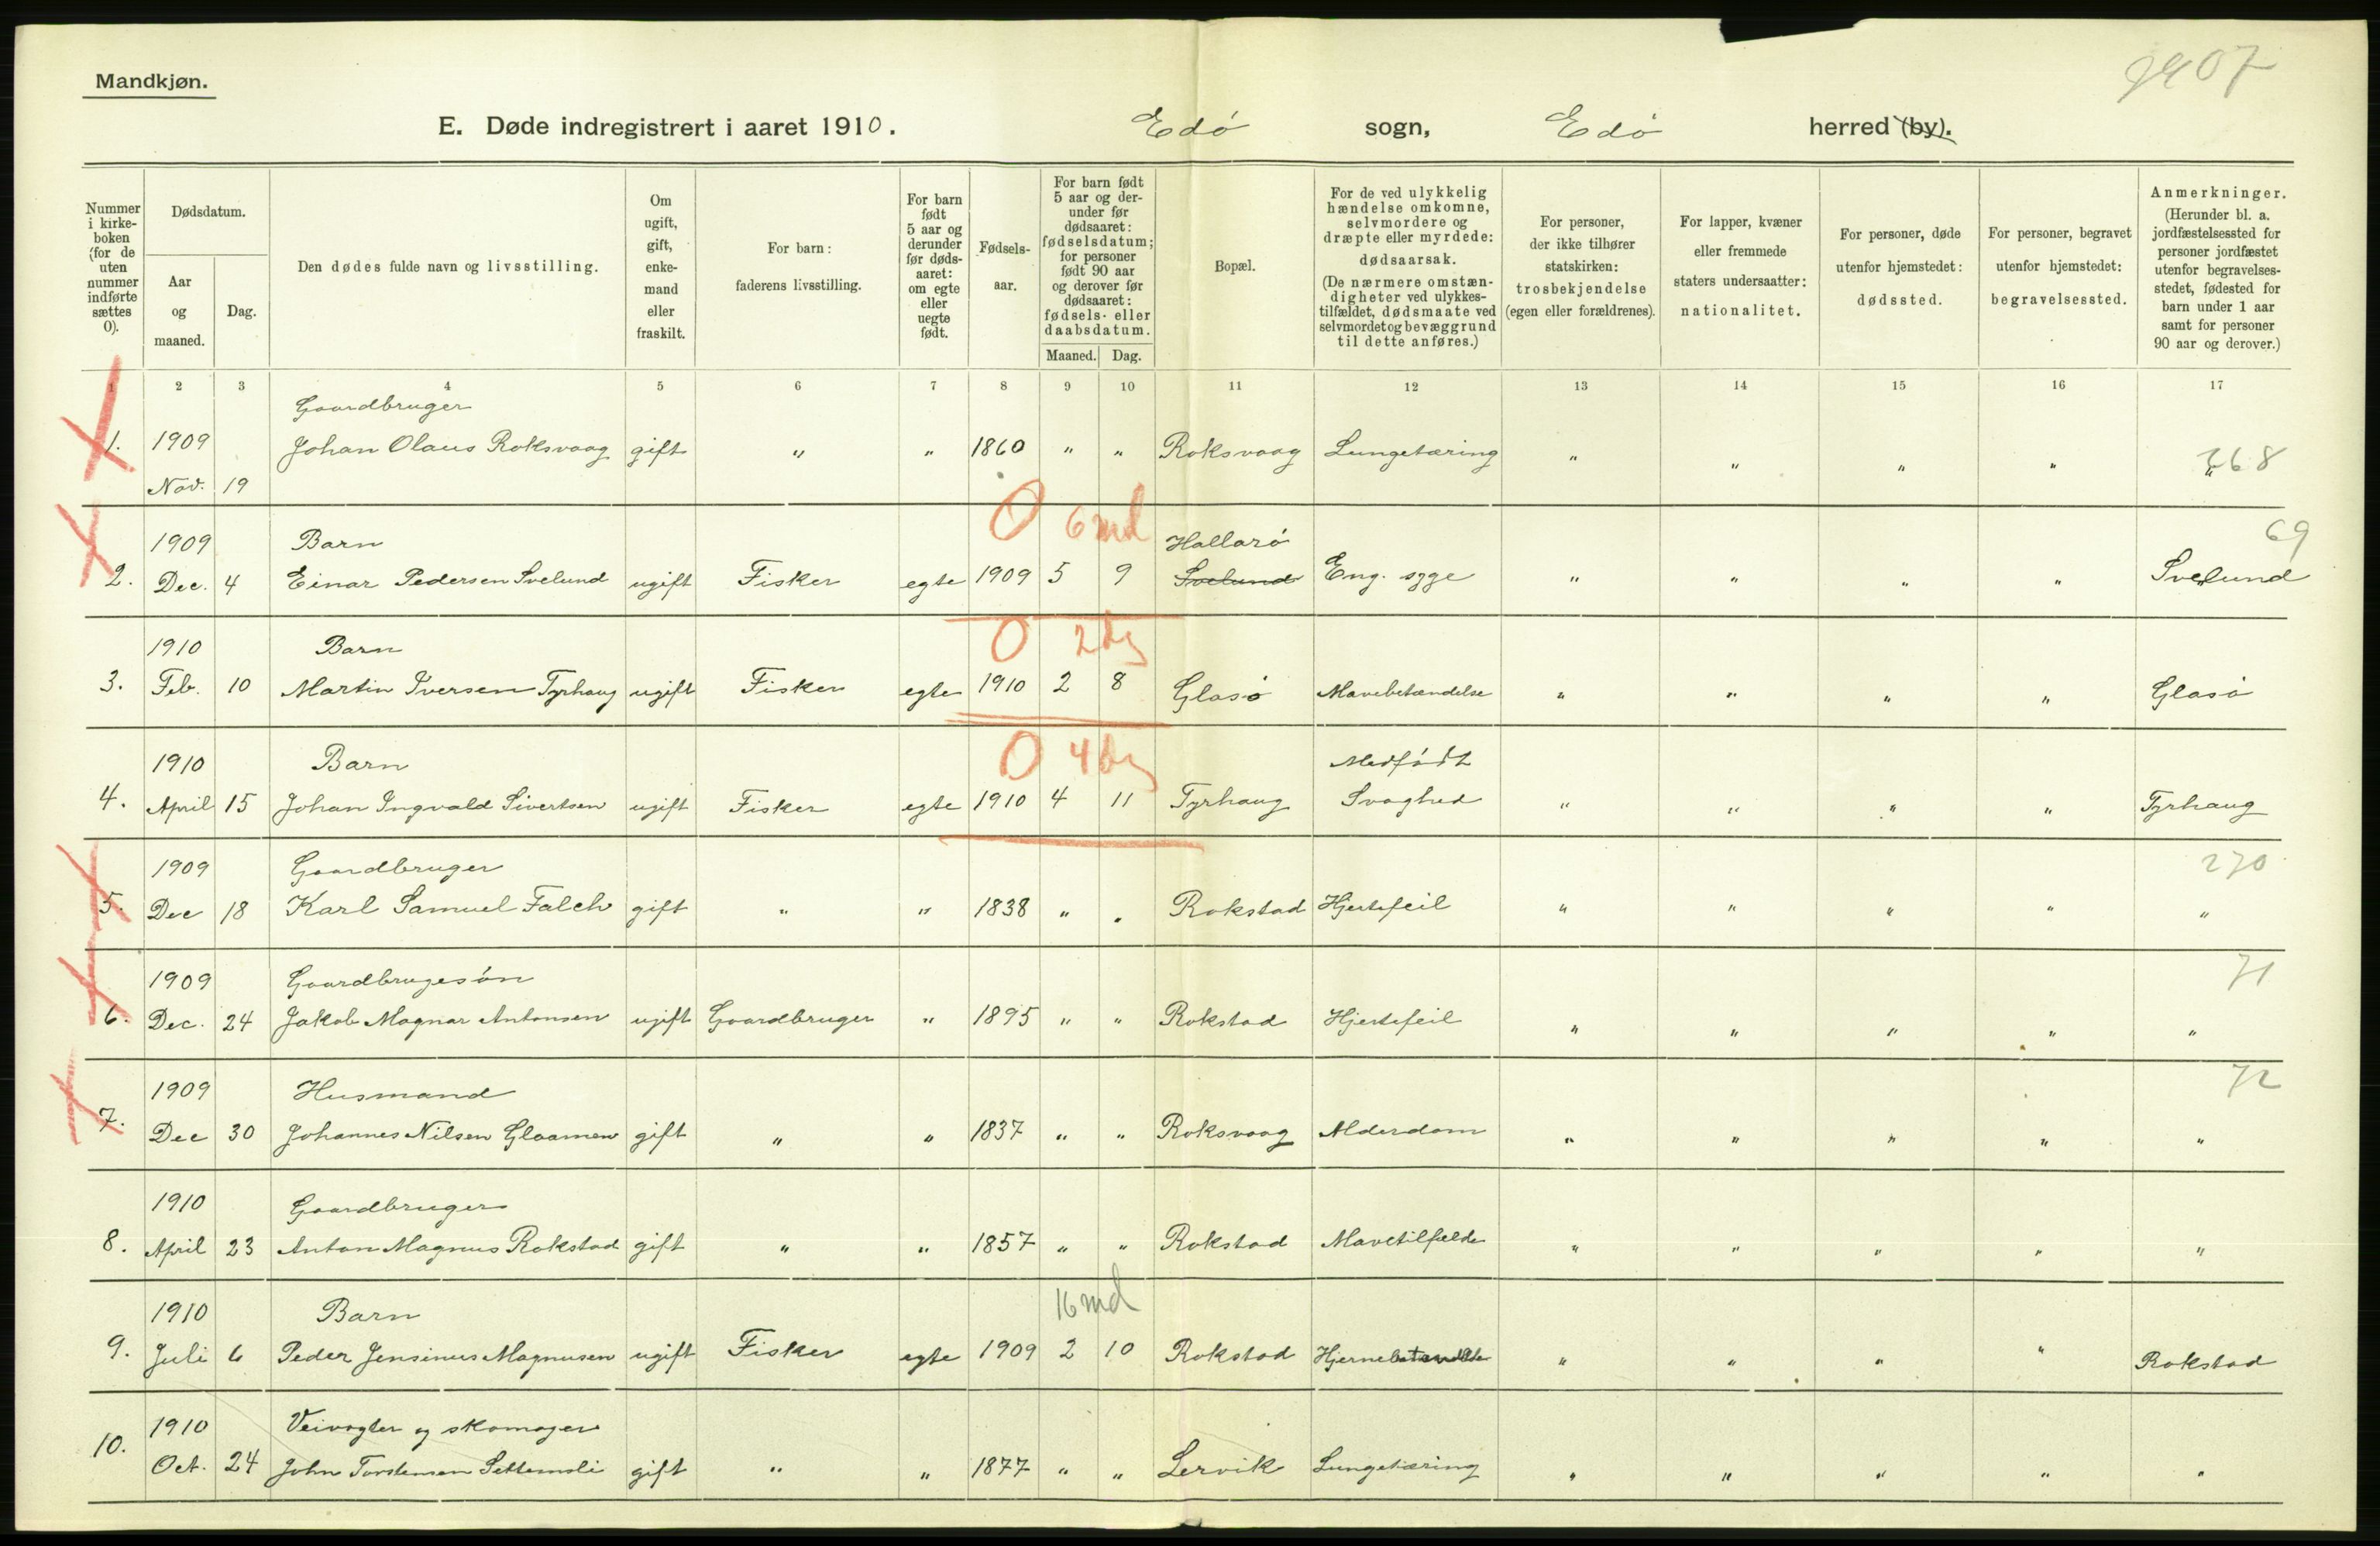 Mandkjøn.
9907
E. Døde indregistrert i aaret 1910. Edö sogn, Edö herred (by).
Nummer i kirke-boken (for de uten nummer indførte sættes 0).
Dødsdatum.
Aar og maaned.
Dag.
Den dødes fulde navn og livsstilling.
Om ugift, gift, enke-mand eller fraskilt.
For barn: faderens livsstilling.
For barn født 5 aar og derunder før døds-aaret: om egte eller uegte født.
Fødsels-aar.
For barn født 5 aar og der-under før dødsaaret: fødselsdatum; for personer født 90 aar og derover før dødsaaret: fødsels- eller daabsdatum.
Maaned. Dag.
Bopæl.
For de ved ulykkelig hændelse omkomne, selvmordere og dræpte eller myrdede: dødsaarsak.
(De nærmere omstæn-digheter ved ulykkes-tilfældet, dødsmaate ved selvmordet og bevæggrund til dette anføres.)
For personer, der ikke tilhører statskirken: trosbekjendelse (egen eller forældrenes).
For lapper, kvæner eller fremmede staters undersaatter: nationalitet.
For personer, døde utenfor hjemstedet: dødssted.
For personer, begravet utenfor hjemstedet: begravelsessted.
Anmerkninger.
(Herunder bl. a. jordfæstelsessted for personer jordfæstet utenfor begravelses-stedet, fødested for barn under 1 aar samt for personer 90 aar og derover.)
1 2 3 4 5 6 7 8 9 10 11 12 13 14 15 16 17
Gaardbruger
1. 1909 Johan Olaus Roksvaag gift " " 1860 " " Roksvaag Lungetæring " " " " " 268
Nov. 19
0 6 md
1909 Barn Hallarö 69
2. Dec. 4 Einar Pedersen Svelund ugift Fisker egte 1909 5 9 Svelund Eng. syge " " " " Svelund
0 2 dg
1910 Barn
3. Feb. 10 Martin Iversen Tyrhaug ugift Fisker egte 1910 2 8 Glasö Mavebetændelse " " " " Glasö
0 4 dg
1910 Barn Medfödt
4. April 15 Johan Ingvald Sivertsen ugift Fisker egte 1910 4 11 Tyrhaug Svaghed " " " " Tyrhaug
1909 Gaardbruger 270
5. Dec 18 Karl Samuel Falch gift " " 1838 " " Rokstad Hjertefeil " " " " "
1909 Gaardbrugesön 71
6. Dec. 24 Jakob Magnar Antonsen ugift Gaardbruger " 1895 " " Rokstad Hjertefeil " " " " "
1909 Husmand 72
7. Dec 30 Johannes Nilsen Glaamen gift " " 1837 " " Roksvaag Alderdom " " " " "
1910 Gaardbruger
8. April 23 Anton Magnus Rokstad gift " " 1857 " " Rokstad Mavetilfælde " " " " "
16 md
1910 Barn
9. Juli 6 Peder Jensinus Magnusen ugift Fisker egte 1909 2 10 Rokstad " " " " Rokstad
1910 Veivogter og skomager
10. Oct. 24 John Torstensen Settemsli gift " " 1877 " " Lervik Lungetæring " " " " "